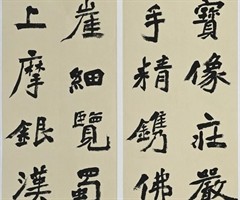 寶像莊嚴
手精鐫佛
崖細覽蜀
上摩銀漢